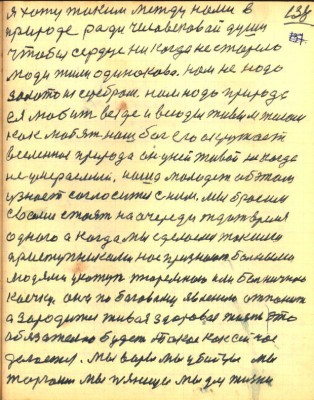 я хочу таким между нами в 138
природе ради человеской души
чтобы сердце никогда не старело
люди жили одинаково. нам не надо
золото и серебром. нам надо природа
ея любить везде и всюду живым телом
как любят наш бог его окружает
вселенная природа он у ней живой никогда
не умераемый, наша молодеж об этом
узнает согласится с ним, мы бросим
своими стоят на очереди ждат время
одного а когда мы сделаем такими
преступниками нас признают больными
людями кладут тюремною или больничною
койку. она по баговому явлению отпадет
а зародится живая здоровая жизнь это
обязательно будет такое как сейчас
делается. мы воры мы убийцы мы
торгаши мы пьяницы мы для жизни